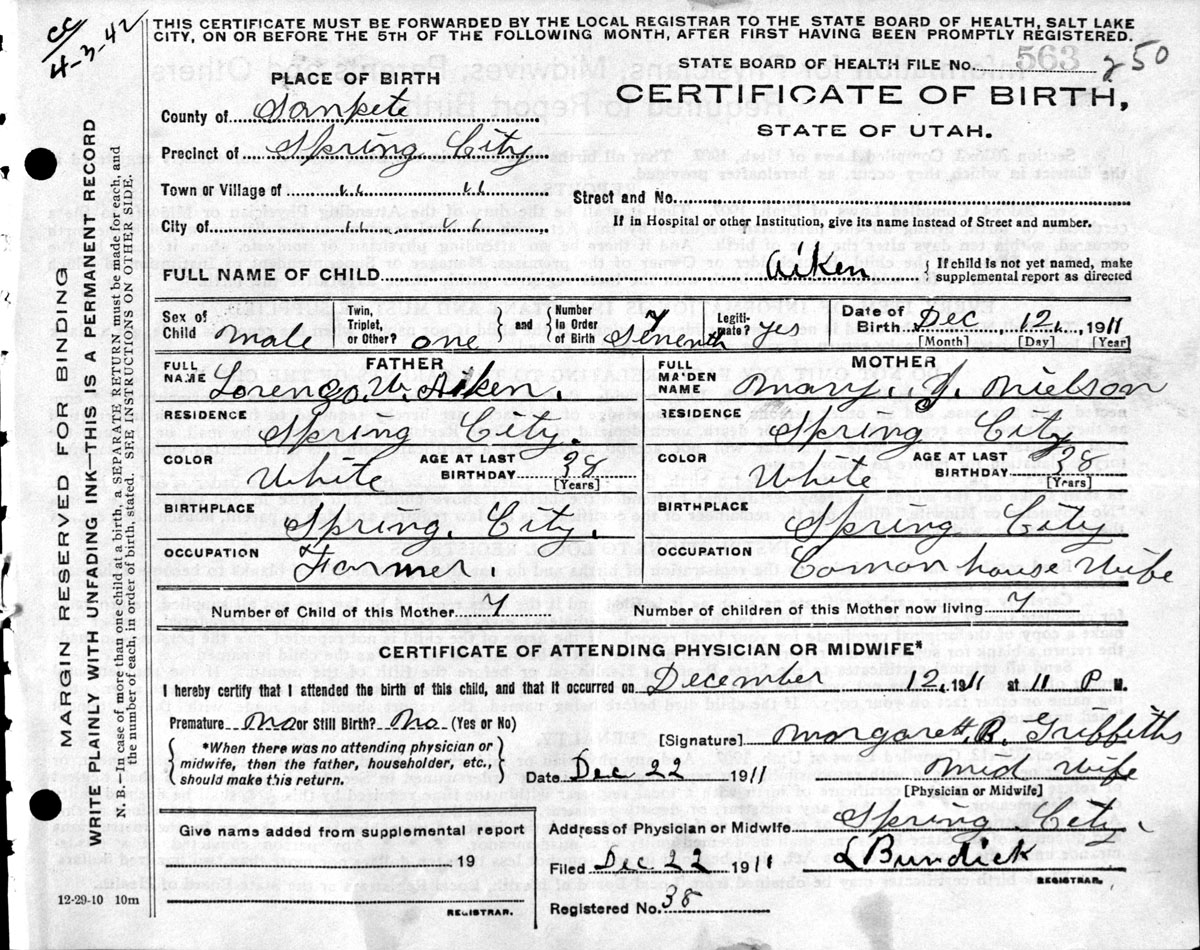 cc
4-3-42
THIS CERTIFICATE MUST BE FORWARDED BY THE LOCAL REGISTRAR TO THE STATE BOARD OF HEALTH, SALT LAKE
CITY, ON OR BEFORE THE 5TH OF THE FOLLOWING MONTH, AFTER FIRST HAVING BEEN PROMPTLY REGISTERED.
STATE BOARD OF HEALTH FILE NO. 563 250
PLACE OF BIRTH
CERTIFICATE OF BIRTH,
STATE OF UTAH.
County of Sanpete
Precinct of Spring City
Town or Village of " "
Street and No.
City of " "
[If in Hospital or other Institution, give its name instead of Street and number.
FULL NAME OF CHILD Aiken
{ If child is not yet named, make
supplemental report as directed
Sex of Child male
Twin, Triplet, or Other? one
and
Number In Order of Birth 7 Seventh
Legiti-mate? yes
Date of Birth Dec, 12, 1911
[Month] [Day] [Year]
FATHER
FULL NAME Lorenzo W. Aiken.
RESIDENCE
Spring City.
COLOR White
AGE AT LAST BIRTHDAY 38
[Years]
BIRTHPLACE
Spring. City.
OCCUPATION
Farmer
MOTHER
FULL MAIDEN NAME Mary J. Nielson
RESIDENCE
Spring City
COLOR White
AGE AT LAST BIRTHDAY 38
[Years]
BIRTHPLACE
Spring City
OCCUPATION
Comon house Wife
Number of Child of this Mother 7
Number of children of this Mother now living 7
CERTIFICATE OF ATTENDING PHYSICIAN OR MIDWIFE*
I hereby certify that I attended the birth of this child, and that it occurred on December 12, 1911 at 11 P M.
Premature no or Still Birth? no (Yes or No)
*When there was no attending physician or
midwife, then the father, householder, etc.,
should make this return.
[Signature] Margarett R. Griffiths
Date Dec 22 1911
Mid Wife
[Physician or Midwife]
Give name added from supplemental report
19
REGISTRAR.
Address of Physician or Midwife Spring City
Filed Dec 22 1911
L Bundick
REGISTRAR.
Registered No. 38
12-29-10 10m
MARGIN RESERVED FOR BINDING
WRITE PLAINLY WITH UNFADING INK—THIS IS A PERMANENT RECORD
N. B.—In case of more than one child at a birth, a SEPARATE RETURN must be made for each, and
the number of each, in order of birth, stated. SEE INSTRUCTIONS ON OTHER SIDE.